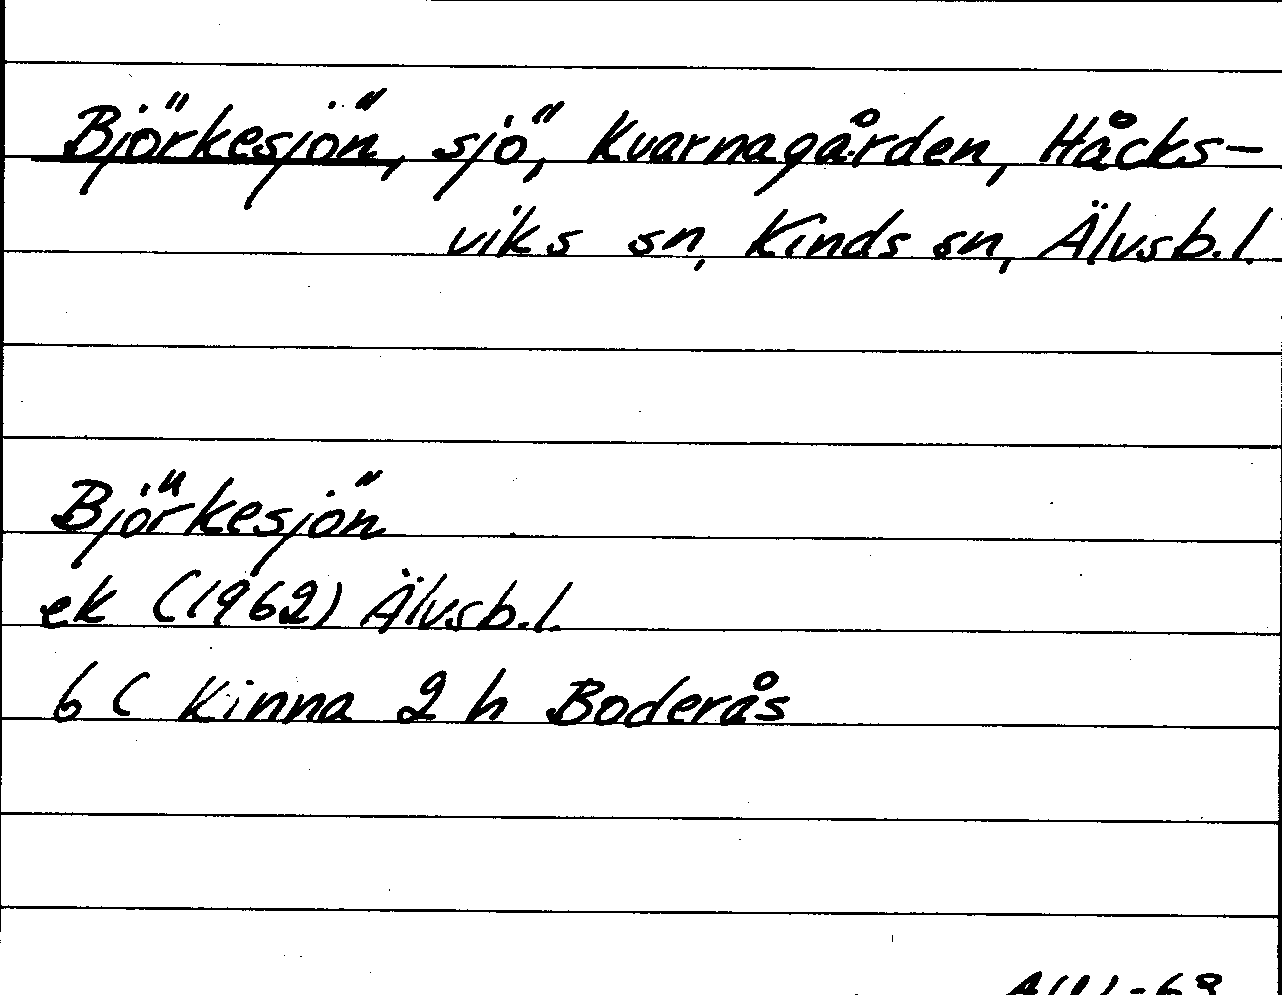 Björkesjön, sjö, Kvarnagården, Håcks-
viks sn, Kinds sn, Älvsb.l.
Björkesjön
ek (1962) Älvsb.l.
6 C Kinna 2 h Boderås